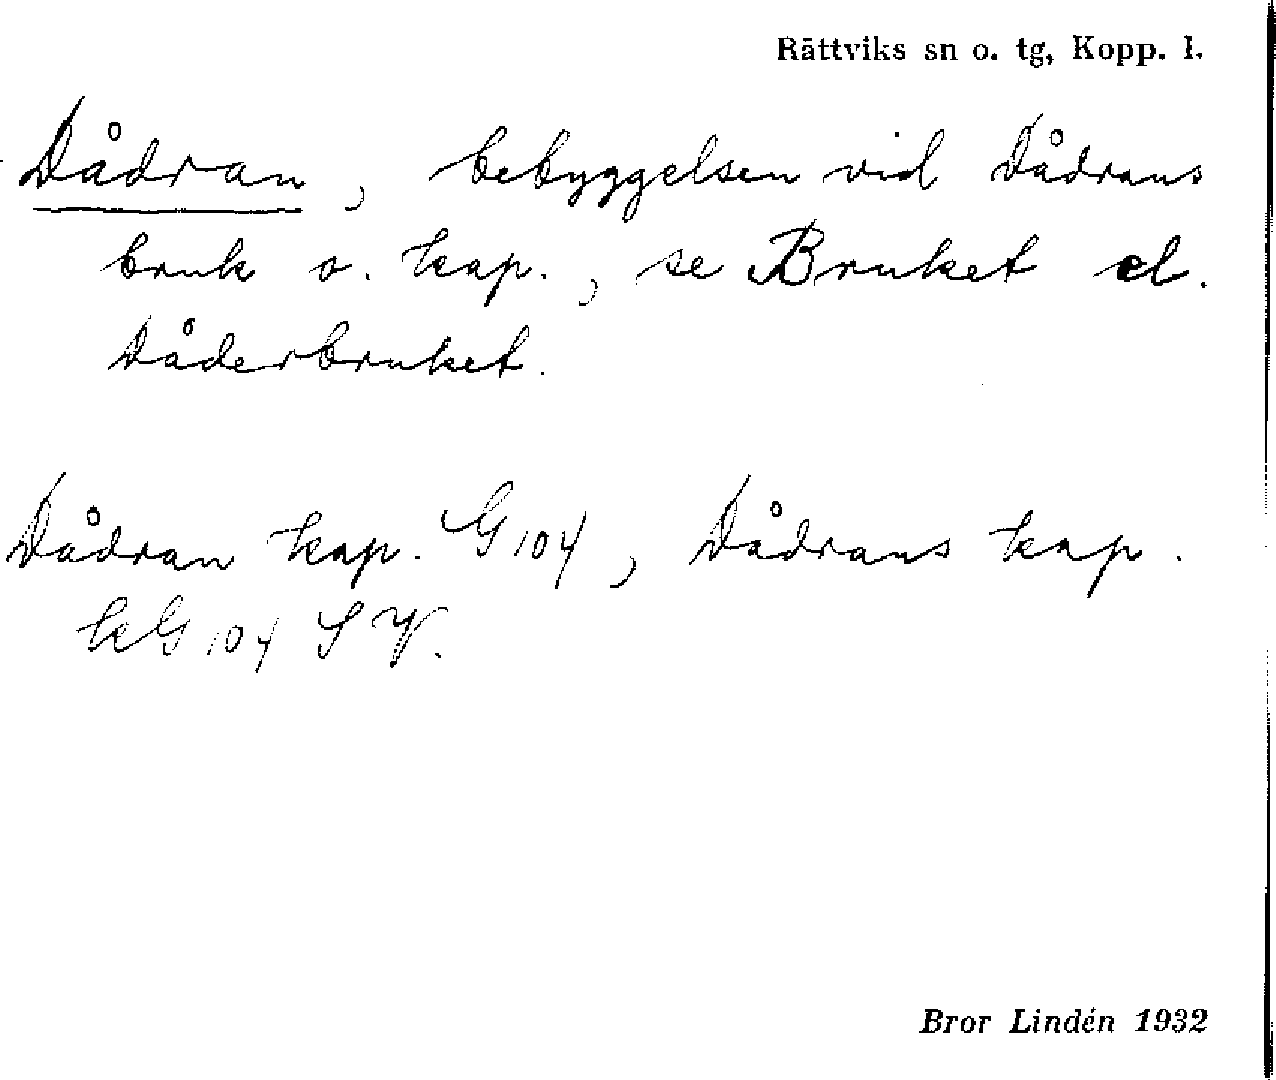 Rättviks sn o. tg, Kopp. l.
Dådran, bebyggelsen vid Dådrans
bruk o. kap., se Bruket el.
Dåderbruket.
Dådran kap. G 104, Dådrans kap.
kG 104 SV.
Bror Lindén 1932